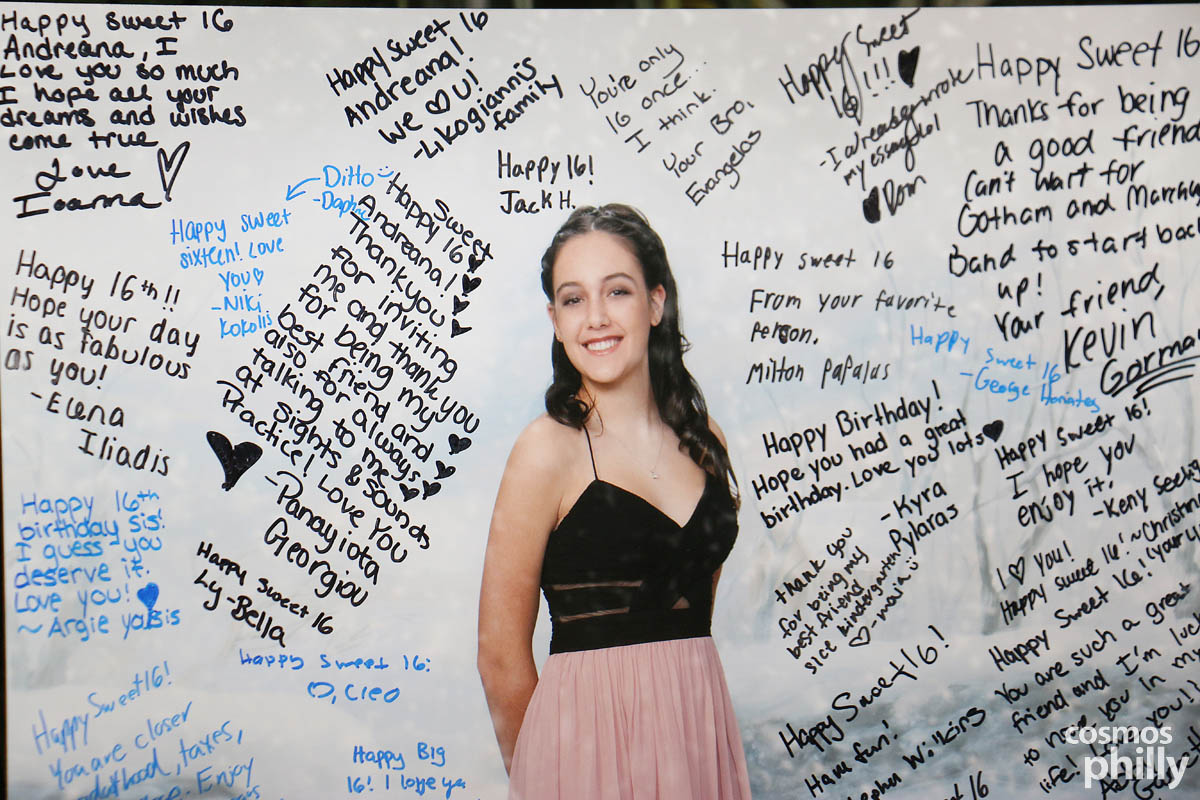 Happy Sweet 16
Andreana, I
Love you so much
I hope all your
dreams and wishes
come true
Love
Ioanna
Happy Sweet 16
Andreana!
We ♡ U!
-Likogiannis
family
You're only
16 once...
I think.
Your Bro,
Evangelos
Happy Sweet
16!!!
-I already wrote
my essay lol
Dom
Happy Sweet 16
Thanks for being
a good friend
Can't wait for
Gotham and Marching
Band to start back
up!
Your friend,
Kevin
Gorman
Happy 16!
Jack H.
Ditto
-Daphne
Happy sweet
sixteen! Love
you♡
-Niki
Kokolis
Sweet
Happy 16
Andreana!
Thank you
for inviting
me and thank you
for being my
best friend and
also for always
talking to me
at Sights & Sounds
Practice! Love You
-Panayiota
Georgiou
Happy 16th!!
Hope your day
is as fabulous
as you!
-Elena
Iliadis
Happy sweet 16
From your favorite
person.
Milton Papalas
Happy
Sweet 16
-George
Happy Birthday!
Hope you had a great
birthday. Love you lots
-Kyra
Pylaras
Happy Sweet 16!
I hope you
enjoy it!
-Keny
Happy 16th
birthday Sis!
I guess you
deserve it.
Love you!
~Argie
Happy Sweet 16
Ly-Bella
Thank you
for being my
best friend
sice kindergarten
♡-maria
I ♡ You!
Happy sweet 16!
Happy Sweet 16!
You are such a great
friend and I'm
to have you in my
life!
you!)
Happy Sweet 16:
♡, Cleo
Happy Sweet 16!
Have fun!
Wilkins
16
Happy Sweet 16!
You are closer
taxes,
Enjoy
Happy Big
16! I love ya
cosmos
philly